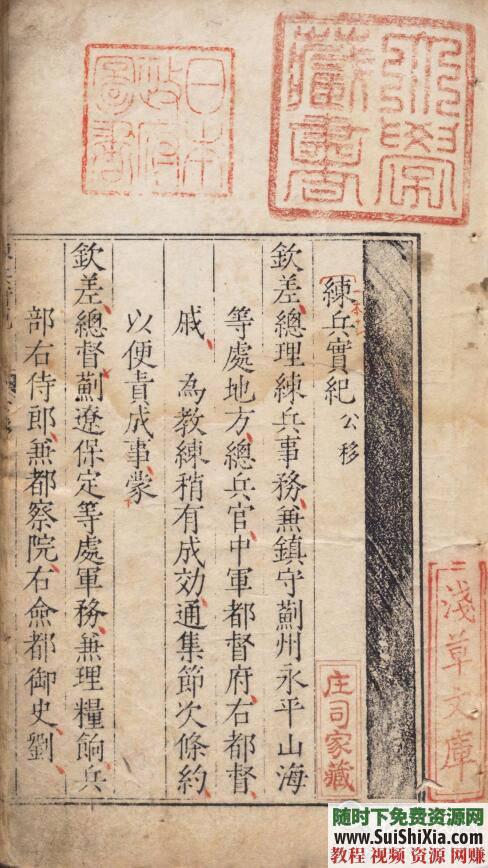 日本
政府
圖書
大學
藏書
練兵實紀 公移
欽差總理練兵事務兼鎮守薊州永平山海
等處地方總兵官中軍都督府右都督
戚 為教練稍有成效通集節次條約
以便責成事蒙
欽差總督薊遼保定等處軍務兼理糧餉兵
部右侍郎兼都察院右僉都御史劉
庄司家藏
淺草文庫
随时下免费资源网
www.SuiShiXia.com
教程 视频 资源 网赚